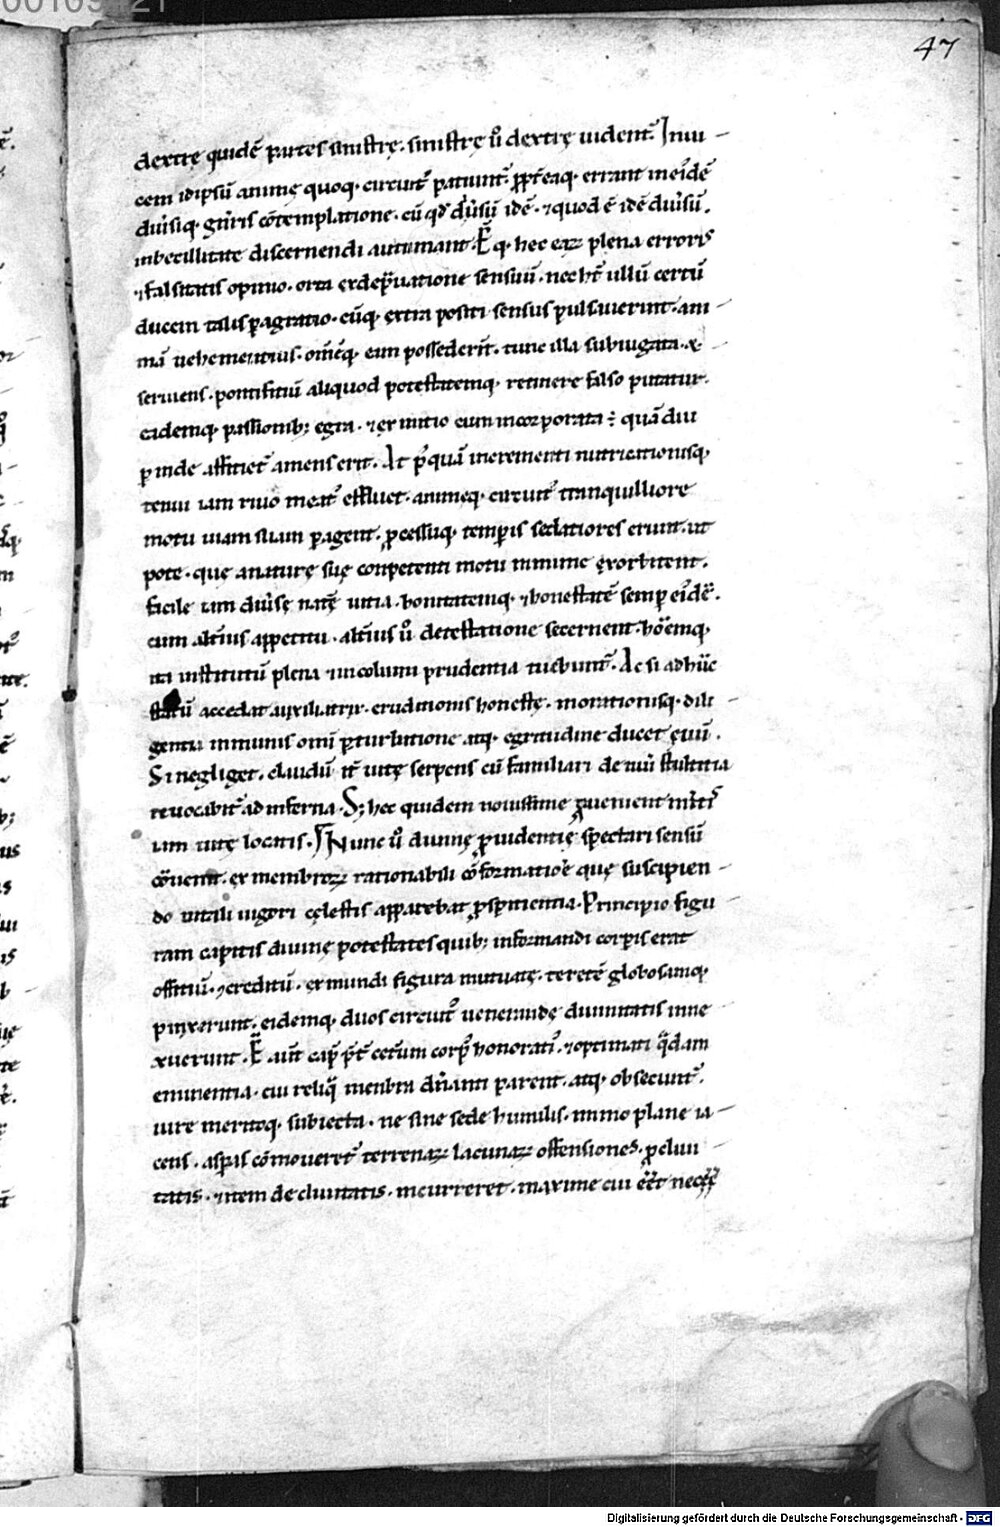 47
dextrę quidē partes sinistrę. sinistrę ů dextrę uident̄. Inui
cem idipsū animę quoq. circuit᷒ patiunt᷒. ꝓpt̄eaq. errant in eidē
diuisiq. gn̄ris cōtemplatione. cū qd diuisū idē. & quod ē idē diuisū.
inbecillitate discernendi autumant. Ēq. hec eaꝝ plena erroris
& falsitatis opinio. orta ex depͣuatione sensuū. nec ht̄ ullū certū
ducem talis ꝑagratio. cūq. extra positi sensus pulsauerint. ani
mā uehementius. omēq. eam possederīt. tunc illa subiugata. &
seruiens. pontifitiū aliquod potestatemq. retinere falso putatur.
eademq. passionib; egra. & ex initio cum incorporata ÷ quādiu
ꝑinde affitiet᷒ amens erit. At pͣquā incrementi nutricationisq.
tenui iam riuo meat᷒ effluet. animeq. circuit᷒ tranquilliore
motu uiam suam ꝑagent. ꝓcessuq. temꝑis sedatiores erunt. ut
pote. quę a naturę suę conpetenti motu minime exorbitent.
facile iam diuisę natę uitia. bonitatemq. & honestatē semꝑ eidē.
cum alt̄ius appetitu. alt̄ius ů detestatione secernent. hōiemq.
iti institutū plena & incolumi prudentia tuebunt᷒. Ac si ad hūc
statū accedat auxiliatrix. eruditionis honestę. morationisq. dili
gentia inmunis omī ꝑturbatione atq. egritudine ducet ęuū.
Si negliget. claudū it᷒ uitę serpens cū familiari demū stultitia
reuocabit᷒ ad inferna. S; hec quidem nouissime ꝓuenient
iam uitę locatis. Nunc ů diuinę ꝓuidentię spectari sensū
cōuenit. ex membroꝝ rationabili cōformatiōe quę suscipien
do uitali uigori cęlestis apparebat ꝓspicientia. Principio figu
ram capitis diuinę potestates quib; informandi corꝑis erat
offitiū. creditū. ex mundi figura mutuatę. teretē globosamq.
pinxerunt. eidemq. duos circuit᷒ uenerandę diuinitatis inne
xuerunt. Ē aut cap̄ p̄t cet̄um corp᷒ honorati᷒. & optimati q̄dam
eminentia. cui reliq̄ menbra dn̄anti parent. atq. obsecunt᷒.
iure meritoq. subiecta. ne sine sede humilis. immo plane ia
cens. asꝑas cōmoueret᷒ terrenaꝝ lacunaꝝ offensiones. ꝓcliui
tatis. & item decliuitatis. incurreret. maxime cui eēt
Digitalisierung gefördert durch die Deutsche Forschungsgemeinschaft - DFG